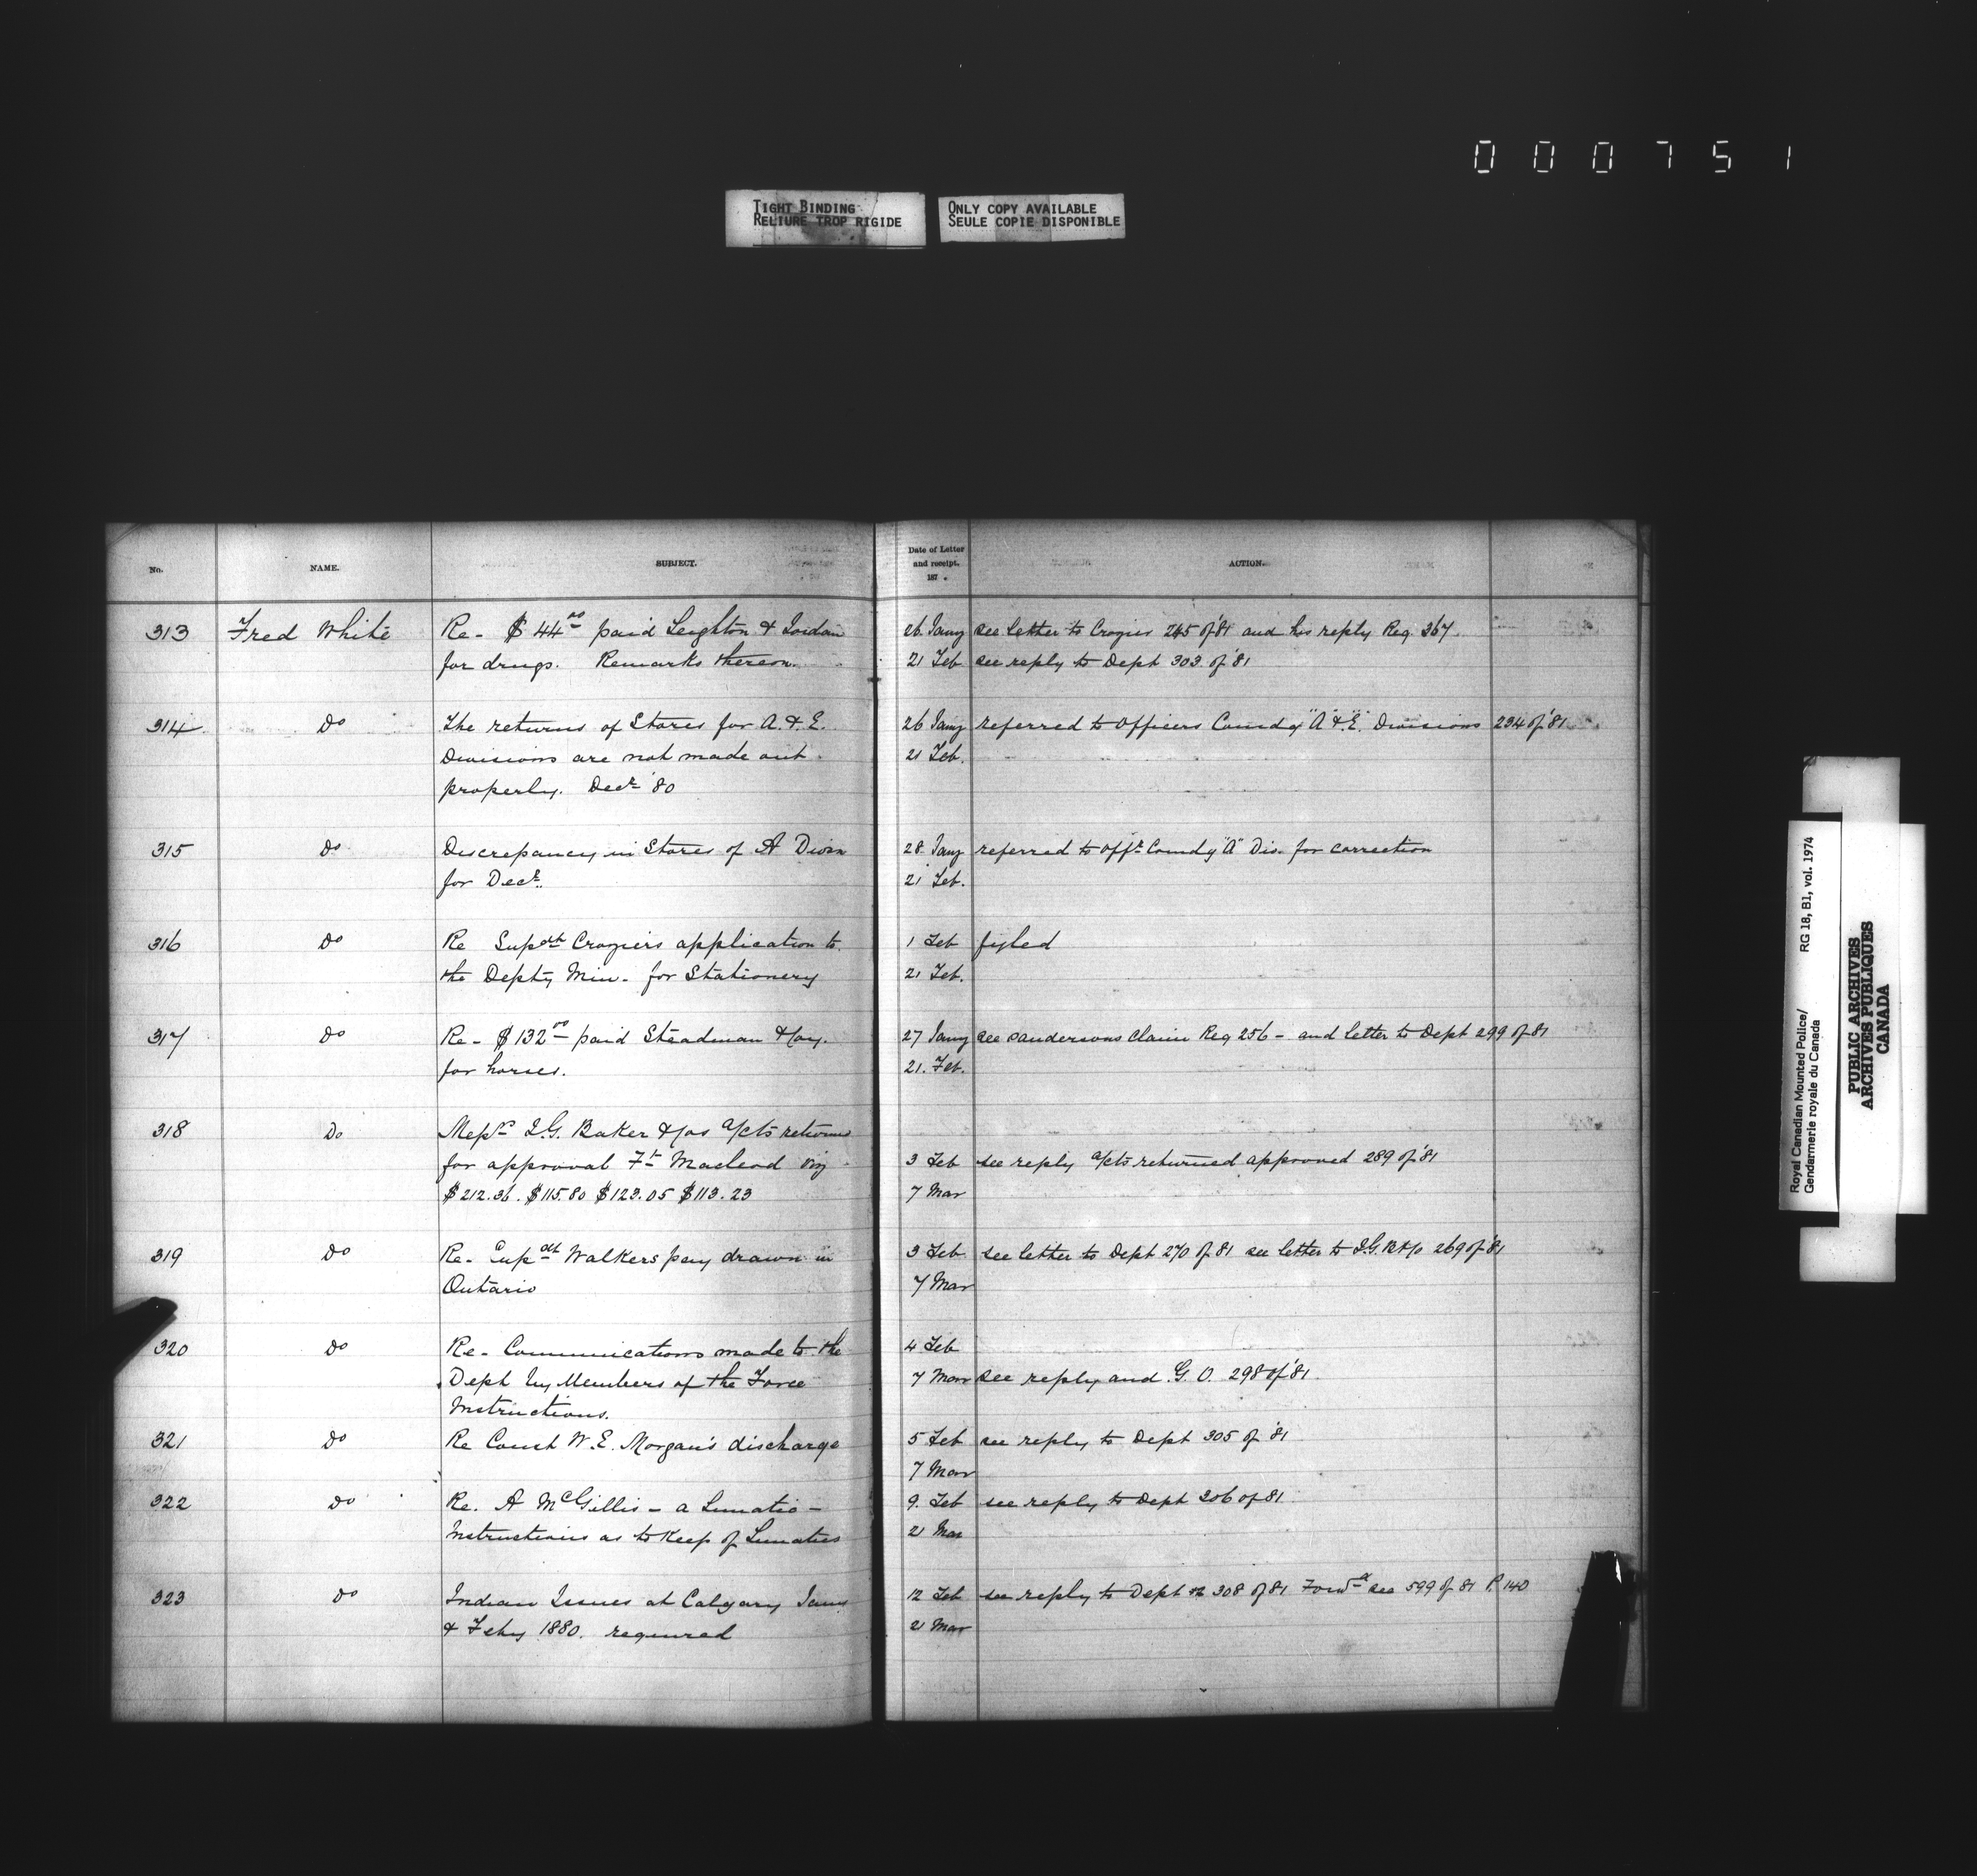 000751
TIGHT BINDING
RELIURE TROP RIGIDE
ONLY COPY AVAILABLE
SEULE COPIE DISPONIBLE
No. NAME. SUBJECT. Date of Letter and receipt. 187 . ACTION.
313 Fred White Re- $44 00 paid Leighton & Jordan 26 Jany see letter to Crozier 245 of '81 and his reply Reg. 367
for drugs. Remarks thereon. 21 Feb see reply to Dept 303 of '81
314 Do The returns of Stores for A. & E. 26 Jany referred to Officers Comdg "A" & "E" Divisions 234 of '81
Divisions are not made out 21 Feb.
properly. Decr '80
315 Do Discrepancy in Stores of A Divn 28 Jany referred to Offr Comdg "A" Div. for correction
for Decr. 21 Feb.
316 Do Re Supdt Croziers application to 1 Feb fyled
the Depty Min- for Stationery 21 Feb.
317 Do Re- $132 00 paid Steadman & Coy. 27 Jany see Sandersons claim Reg 256 - and letter to Dept 299 of 81
for horses. 21. Feb.
318 Do Messrs I.G. Baker & Cos a/cts returned
for approval Ft Macleod viz 3 Feb see reply a/cts returned approved 289 of '81
$212.36. $115.80 $123.05 $113.23 7 Mar
319 Do Re- Supdt Walkers pay drawn in 3 Feb see letter to Dept 270 of 81 see letter to I.G.B & Co 269 of '81
Ontario 7 Mar
320 Do Re- Communications made to the 4 Feb
Dept by Members of the Force 7 Mar see reply and G.O. 298 of '81
Instructions.
321 Do Re Const W. E. Morgan's discharge 5 Feb see reply to Dept 305 of '81
7 Mar
322 Do Re. A McGillis - a Lunatic - 9. Feb see reply to Dept 306 of 81
Instructions as to Keep of Lunatics 21 Mar
323 Do Indian Issues at Calgary Jany 12 Feb see reply to Dept 308 of 81 Forwd see 599 of 81 P. 140
& Feby 1880. required 21 Mar
Royal Canadian Mounted Police/ RG 18, B1, vol. 1974
Gendarmerie royale du Canada
PUBLIC ARCHIVES
ARCHIVES PUBLIQUES
CANADA